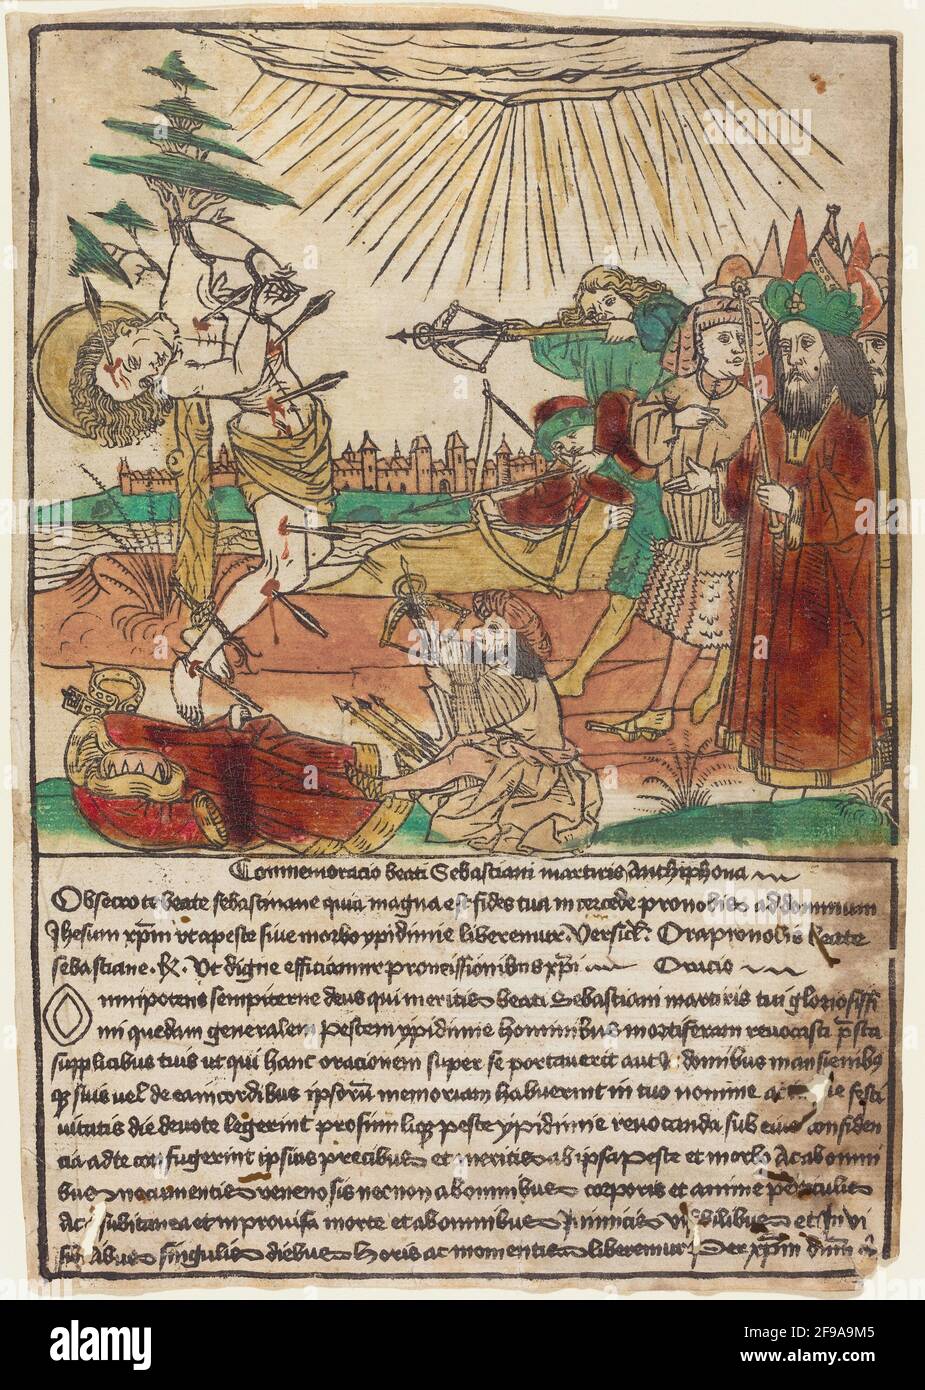 Commemoracio beati Sebastiani martiris Anthiphona
Obsecro te beate sebastiane quia magna est fides tua intercede pro nobis ad dominum
Jhesum xp̄m vt a peste siue morbo ypidimie liberemur. Versicl̓: Ora pro nobis beate
sebastiane. ℟. Ut digne efficiamur promissionibus xp̄i Oracio
Omnipotens sempiterne deus qui meritis beati Sebastiani martiris tui gloriosissi
mi quedam generalem pestem ypidimie hominibus mortiferam reuocasti p̄sta
supplicibus tuis ut qui hanc orationem super se portauerit aut
suis vel de eam cordibus ipsorū memoriam habuerint in tuo nomine festi
uitatis die deuote legerint peste ypidimie reuocanda sub eius confiden
cia ad te confugerint ipsius precibus et meritis ab ipsa peste et morbo Ac ab omni
bus nocumentis venenosis necnon ab omnibus corporis et anime periculis
Ac subitanea et improuisa morte et ab omnibus Inimicis visibilibus et Inui
sibilibus singulis diebus horis ac momentis liberemur Per xp̄m
alamy
alamy
Image ID: 2F9A9M5
www.alamy.com